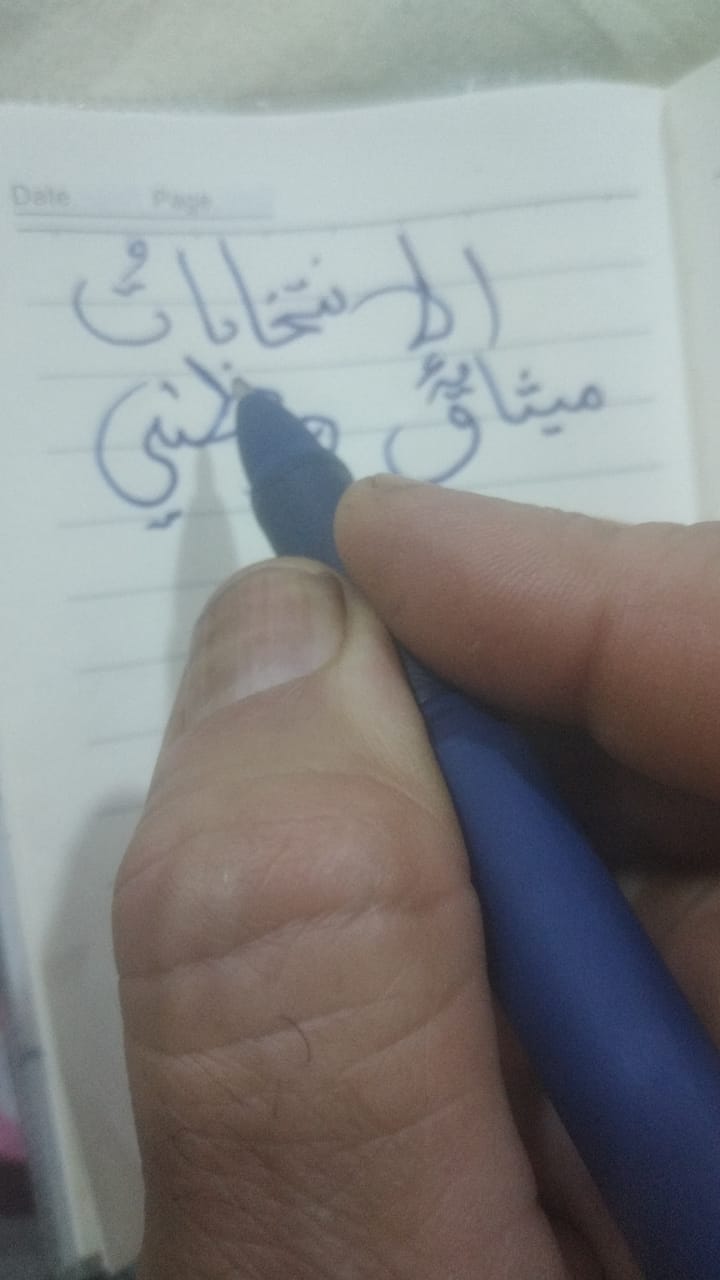 Date Page
الانتخاباتُ
ميثاقٌ وطني